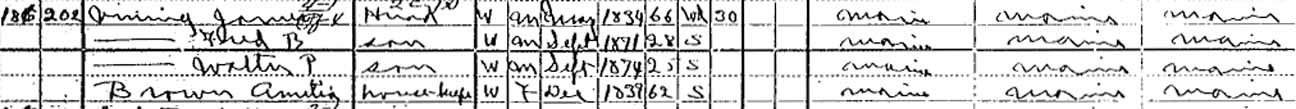 186 202 Vining James Head W M May 1834 66 Wd 30 Maine Maine Maine
—— Fred B son W M Sept 1871 28 S Maine Maine Maine
—— Walter P son W M Sept 1874 25 S Maine Maine Maine
Brown house-keeper W F Dec 1837 62 S Maine Maine Maine